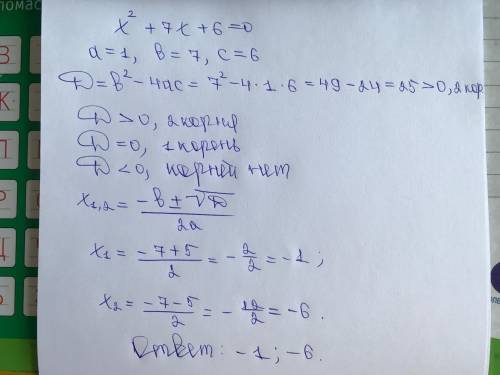 x² + 7x + 6 = 0
a = 1, b = 7, c = 6
D = b² - 4ac = 7² - 4 · 1 · 6 = 49 - 24 = 25 > 0, 2 кор.
D > 0, 2 корня
D = 0, 1 корень
D < 0, корней нет
x₁,₂ = (-b ± √D) / 2a
x₁ = (-7 + 5) / 2 = -2/2 = -1;
x₂ = (-7 - 5) / 2 = -12/2 = -6.
Ответ: -1; -6.